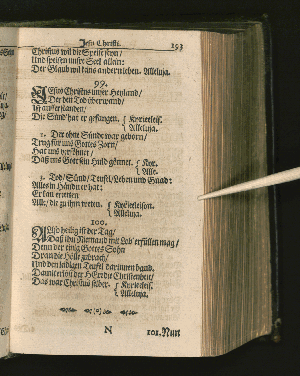 Jesu Christi. 193
Christus wil die Speise seyn/
Und speisen unsre Seel allein:
Der Glaub wil kans andern leben. Alleluja.
99.
JEsus Christus unser Heyland/
Der den Tod überwand/
Ist aufferstanden/
Die Sünd hat er gefangen. { Kyrieleis.
Alleluja.
2. Der ohne Sünde war geboren/
Trug für uns Gottes Zorn/
Hat uns versühnet/
Daß uns Gott sein Huld gönnet. { Kyr.
Alle.
3. Tod/ Sünd/ Teufel/ Leben und Gnad:
Alles in Händen er hat:
Er kan erretten
Alle/ die zu ihm treten. { Kyrieleison.
Alleluja.
100.
ALso heilig ist der Tag/
Daß ihn Niemand mit Lob erfüllen mag/
Denn der einig Gottes Sohn
Die Hölle zubrach/
Und den leidigen Teufel darinnen band.
Damit erlöst der HErr die Christenheit/
Das war Christus selber. { Kyrieleis.
Alleluja.
N 101. Nun